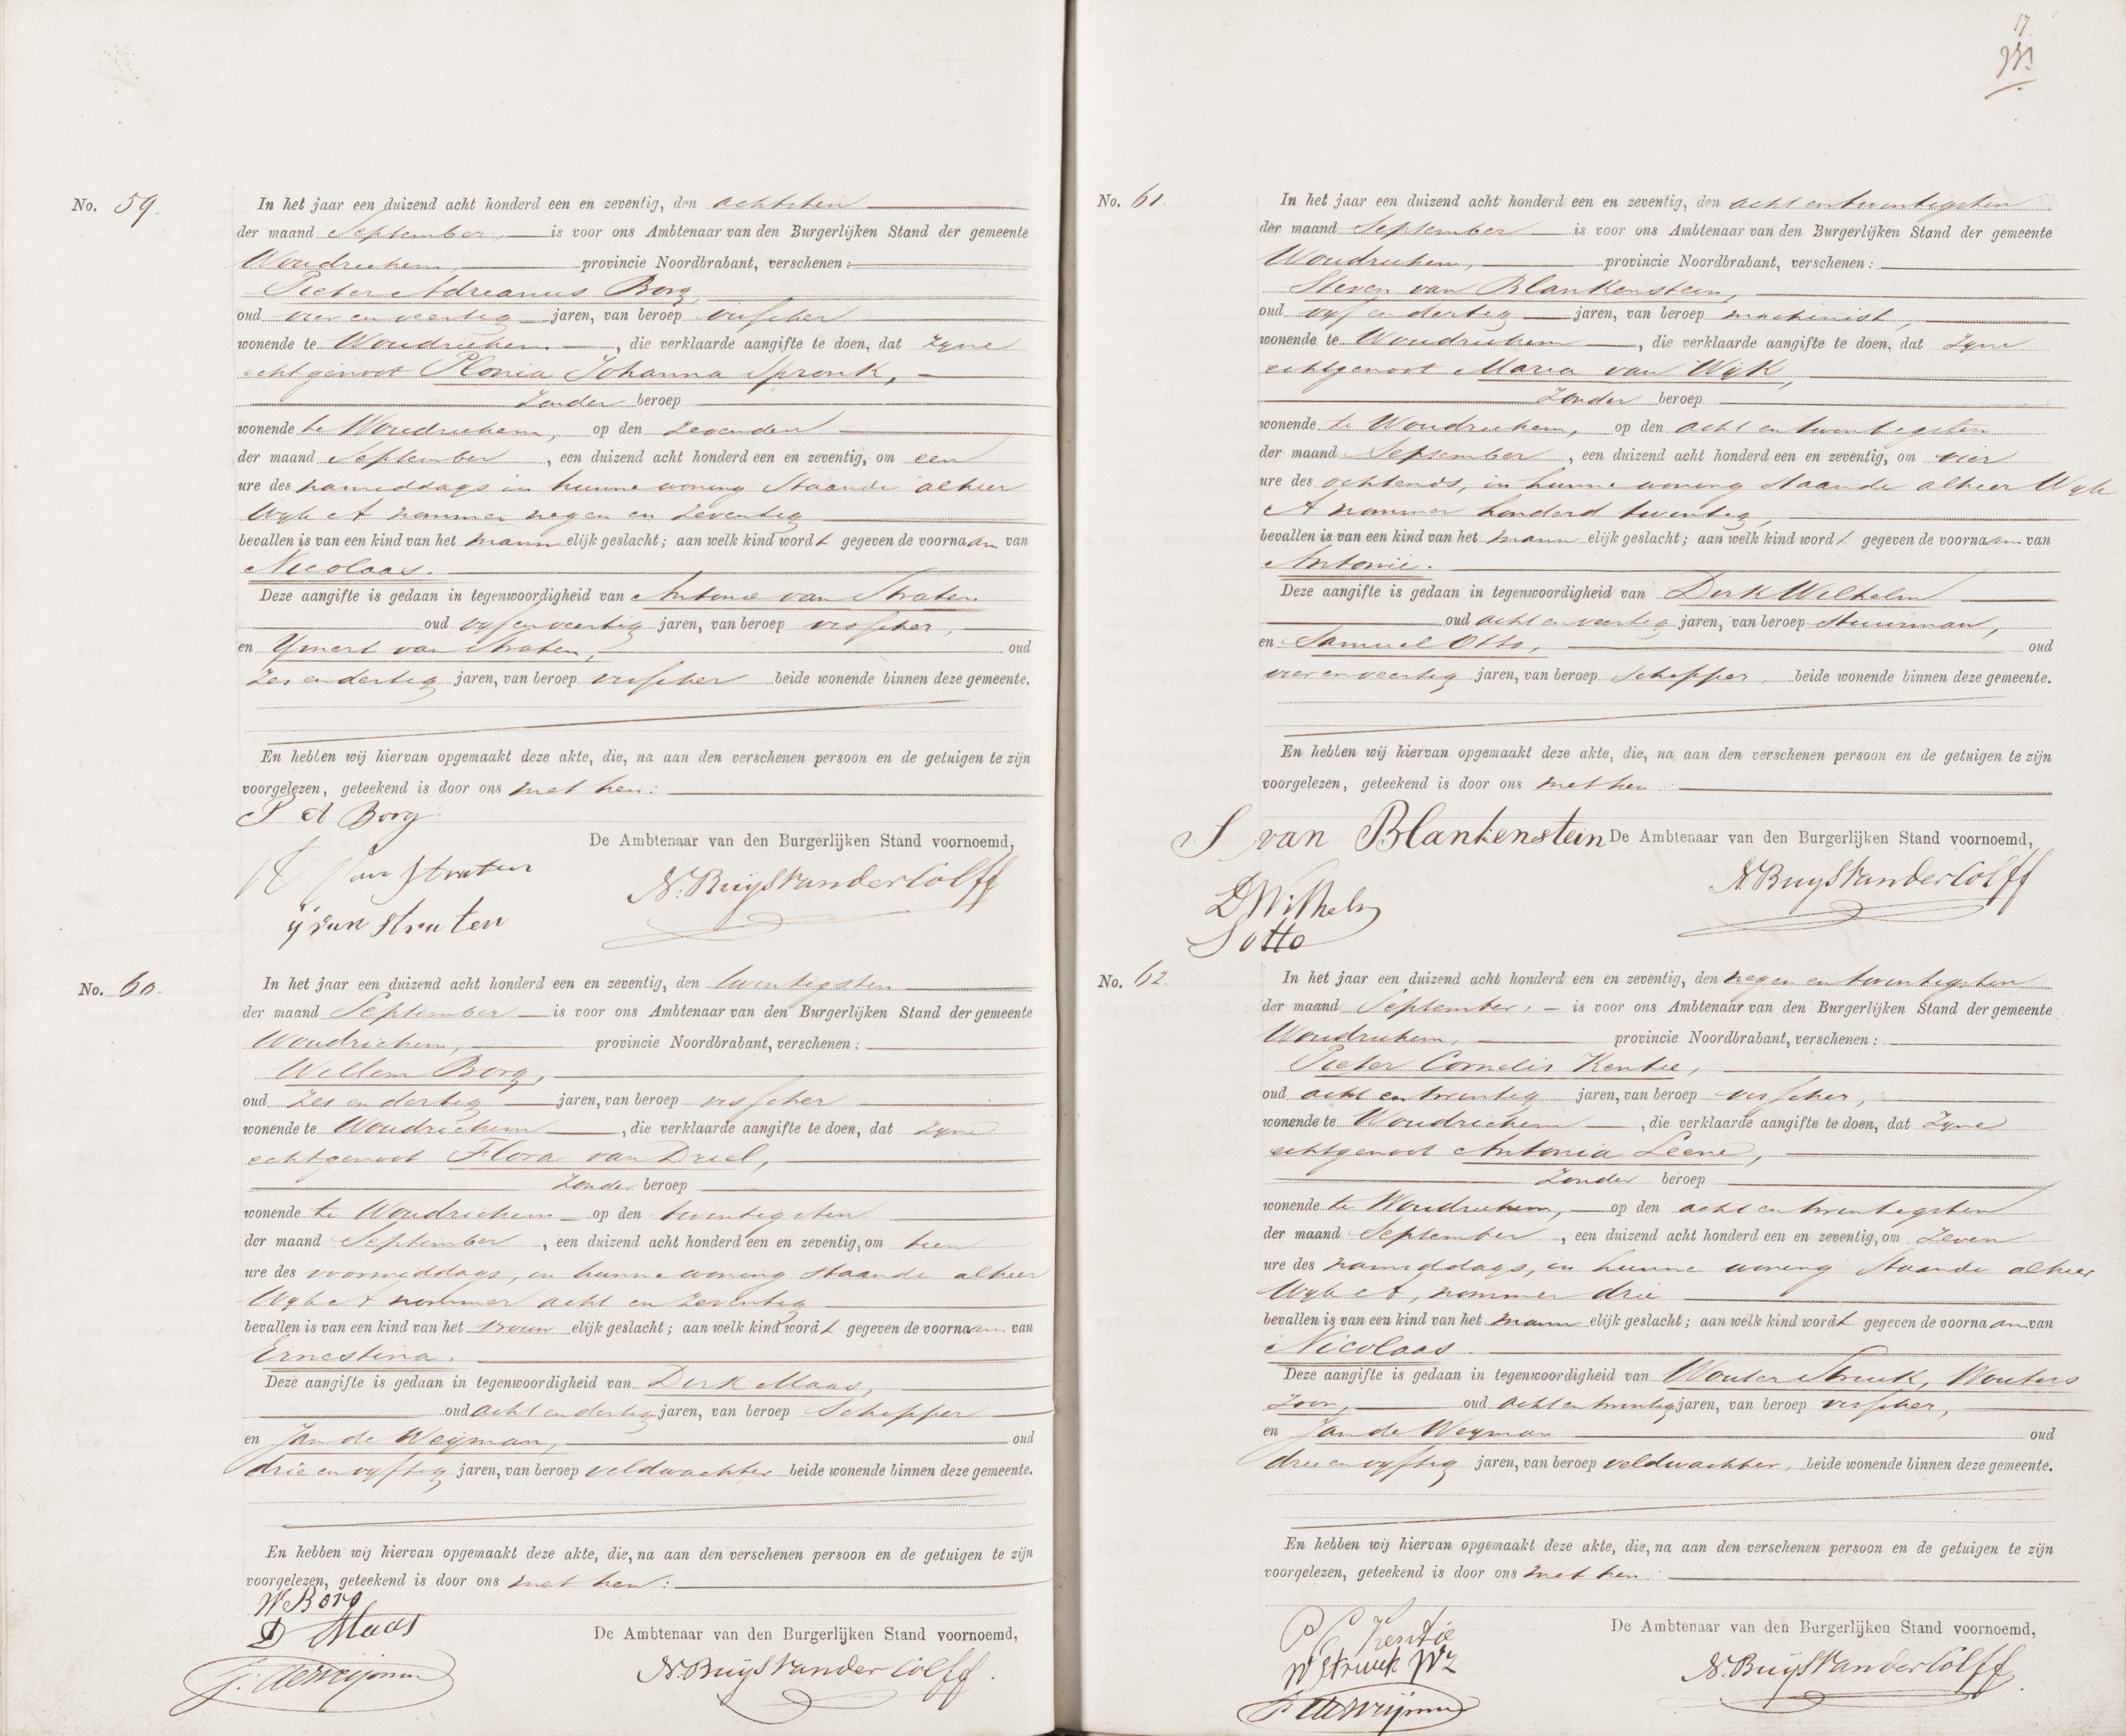 No. 59.
In het jaar een duizend acht honderd een en zeventig, den achtsten
der maand September, is voor ons Ambtenaar van den Burgerlijken Stand der gemeente
Woudrichem, provincie Noordbrabant, verschenen:
Pieter Adrianus Borg,
oud vier en veertig jaren, van beroep visscher
wonende te Woudrichem, die verklaarde aangifte te doen, dat zyne
echtgenoot Plonia Johanna Spronk,
Zonder beroep
wonende te Woudrichem, op den zevenden
der maand September, een duizend acht honderd een en zeventig, om een
ure des namiddags in hunne woning staande alhier
Wyk A nommer negen en zeventig
bevallen is van een kind van het mannelijk geslacht; aan welk kind wordt gegeven de voornaam van
Nicolaas.
Deze aangifte is gedaan in tegenwoordigheid van Antonie van Straten
oud vyf en veertig jaren, van beroep visscher,
en Ymert van Straten, oud
zes en dertig jaren, van beroep visscher beide wonende binnen deze gemeente.
En hebben wij hiervan opgemaakt deze akte, die, na aan den verschenen persoon en de getuigen te zijn
voorgelezen, geteekend is door ons met hen:
P A Borg
De Ambtenaar van den Burgerlijken Stand voornoemd,
A van Straten
N. Buys van der Colff
ÿ van Straten
No. 60.
In het jaar een duizend acht honderd een en zeventig, den twentigsten
der maand September is voor ons Ambtenaar van den Burgerlijken Stand der gemeente
Woudrichem, provincie Noordbrabant, verschenen:
Willem Borg,
oud zes en dertig jaren, van beroep visscher
wonende te Woudrichem, die verklaarde aangifte te doen, dat zyne
echtgenoot Flora van Driel,
Zonder beroep
wonende te Woudrichem op den twentigsten
der maand September, een duizend acht honderd een en zeventig, om tien
ure des voormiddags, in hunne woning staande alhier
Wyk A nommer acht en zeventig
bevallen is van een kind van het vrouwelijk geslacht; aan welk kind wordt gegeven de voornaam van
Ernestina.
Deze aangifte is gedaan in tegenwoordigheid van Dirk Maas,
oud acht en dertig jaren, van beroep Schipper
en Jan de Weijman, oud
drie en vyftig jaren, van beroep veldwachter beide wonende binnen deze gemeente.
En hebben wij hiervan opgemaakt deze akte, die, na aan den verschenen persoon en de getuigen te zijn
voorgelezen, geteekend is door ons met hen:
W Borg
D Maas
De Ambtenaar van den Burgerlijken Stand voornoemd,
J. de Weijman
N. Buys van der Colff.
17
No. 61.
In het jaar een duizend acht honderd een en zeventig, den acht en twentigsten
der maand September is voor ons Ambtenaar van den Burgerlijken Stand der gemeente
Woudrichem, provincie Noordbrabant, verschenen:
Steven van Blankenstein,
oud vyf en dertig jaren, van beroep machinist,
wonende te Woudrichem, die verklaarde aangifte te doen, dat zyne
echtgenoot Maria van Wijk,
Zonder beroep
wonende te Woudrichem, op den acht en twentigsten
der maand September, een duizend acht honderd een en zeventig, om vier
ure des ochtends, in hunne woning staande alhier Wyk
A nommer honderd twentig,
bevallen is van een kind van het mannelijk geslacht; aan welk kind wordt gegeven de voornaam van
Antonie.
Deze aangifte is gedaan in tegenwoordigheid van Dirk Wilhelm
oud acht en veertig jaren, van beroep stuurman,
en Samuel Otto, oud
vier en veertig jaren, van beroep Schipper, beide wonende binnen deze gemeente.
En hebben wij hiervan opgemaakt deze akte, die, na aan den verschenen persoon en de getuigen te zijn
voorgelezen, geteekend is door ons met hen:
S van Blankenstein De Ambtenaar van den Burgerlijken Stand voornoemd,
N. Buys van der Colff
D Wilhelm
S otto
No. 62.
In het jaar een duizend acht honderd een en zeventig, den negen en twentigsten
der maand September, is voor ons Ambtenaar van den Burgerlijken Stand der gemeente
Woudrichem, provincie Noordbrabant, verschenen:
Pieter Cornelis Kentie,
oud acht en twentig jaren, van beroep visscher,
wonende te Woudrichem, die verklaarde aangifte te doen, dat zyne
echtgenoot Antonia Leene,
Zonder beroep
wonende te Woudrichem, op den acht en twentigsten
der maand September, een duizend acht honderd een en zeventig, om zeven
ure des namiddags, in hunne woning staande alhier
Wyk A, nommer drie
bevallen is van een kind van het mannelijk geslacht; aan welk kind wordt gegeven de voornaam van
Nicolaas.
Deze aangifte is gedaan in tegenwoordigheid van Wouter Struik, Wouters
Zoon, oud acht en twentig jaren, van beroep visscher,
en Jan de Weyman oud
drie en vyftig jaren, van beroep veldwachter, beide wonende binnen deze gemeente.
En hebben wij hiervan opgemaakt deze akte, die, na aan den verschenen persoon en de getuigen te zijn
voorgelezen, geteekend is door ons met hen:
P C Kentie
De Ambtenaar van den Burgerlijken Stand voornoemd,
W Struik Wz
N. Buys van der Colff
J. de Weijman